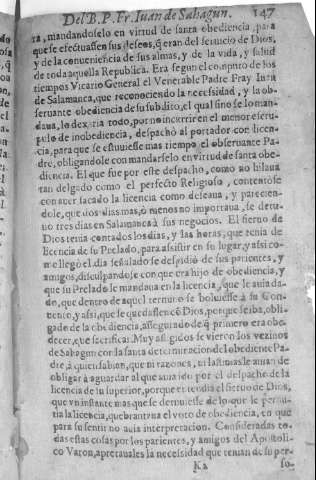 Del B. P. Fr. Iuan de Sahagun. 147
ra, mandandoselo en virtud de santa obediencia, para
que se efectuassen sus deseos, q̃ eran del seruicio de Dios,
y de la conueniencia de sus almas, y de la vida, y salud
de toda aquella Republica. Era segun el computo de los
tiempos Vicario General el Venerable Padre Fray Iuan
de Salamanca, que reconociendo la necessidad, y la ob-
seruante obediencia de su subdito, el qual sino se lo man-
daua, lo dexaria todo, por no incurrir en el menor escru-
pulo de inobediencia, despachò al portador con licen-
cia, para que se estuuiesse mas tiempo el obseruante Pa-
dre, obligandole con mandarselo en virtud de santa obe-
diencia. El que fue por este despacho, como no hilaua
tan delgado como el perfecto Religioso, contentòse
con auer sacado la licencia como deseaua, y parecien-
dole, que dos dias mas, ò menos no importaua, se detu-
uo tres dias en Salamanca à sus negocios. El sieruo de
Dios tenia contados los dias, y las horas, que tenia de
licencia de su Prelado, para assistir en su lugar, y assi co-
mo llegò el dia señalado se despidiò de sus parientes, y
amigos, disculpandose con que era hijo de obediencia, y
que su Prelado le mandaua en la licencia, que le auia da-
do, que dentro de aquel termino se boluiesse à su Con-
uento, y assi, que se quedassen cõ Dios, porque se iba, obli-
gado de la obediencia, assegurado de q̃ primero era obe-
decer, que sacrificar. Muy afligidos se vieron los vezinos
de Sahagun con la santa determinacion del obediente Pa-
dre, à quien sabian, que ni razones, ni lastimas le auian de
obligar à aguardar al que auia ido por el despacho de la
licencia de su superior, porque entendia el sieruo de Dios,
que vn instante mas que se demuiesse de lo que le permi-
tia la licencia, quebrantaua el voto de obediencia, en que
para su sentir no auia interpretacion. Consideradas to-
das estas cosas por los parientes, y amigos del Apostoli-
co Varon, apretauales la necessidad que tenian de su per-
Ka so-